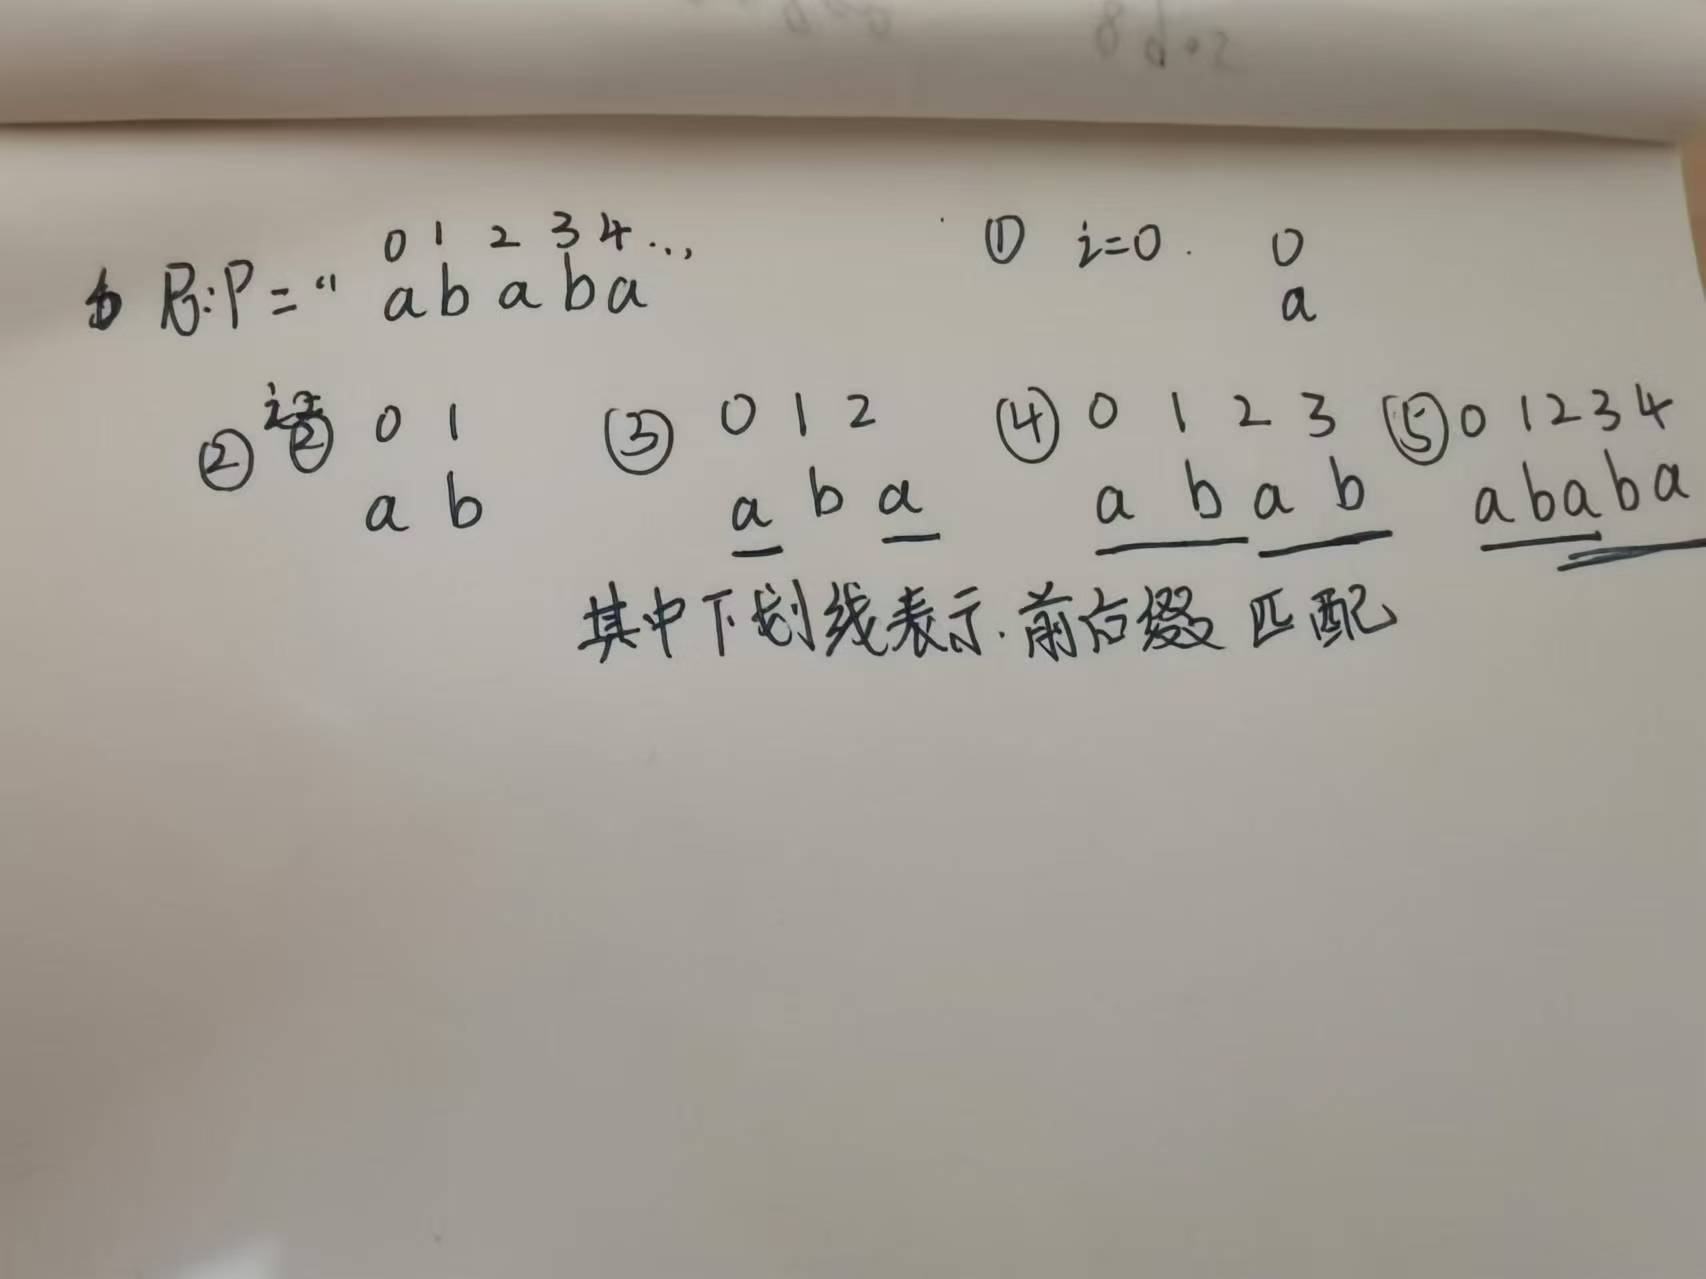 0 1 2 3 4 ...
P = " a b a b a
① i=0. 0
a
② 0 1
a b
③ 0 1 2
a b a
④ 0 1 2 3
a b a b
⑤ 0 1 2 3 4
a b a b a
其中下划线表示.前后缀 匹配